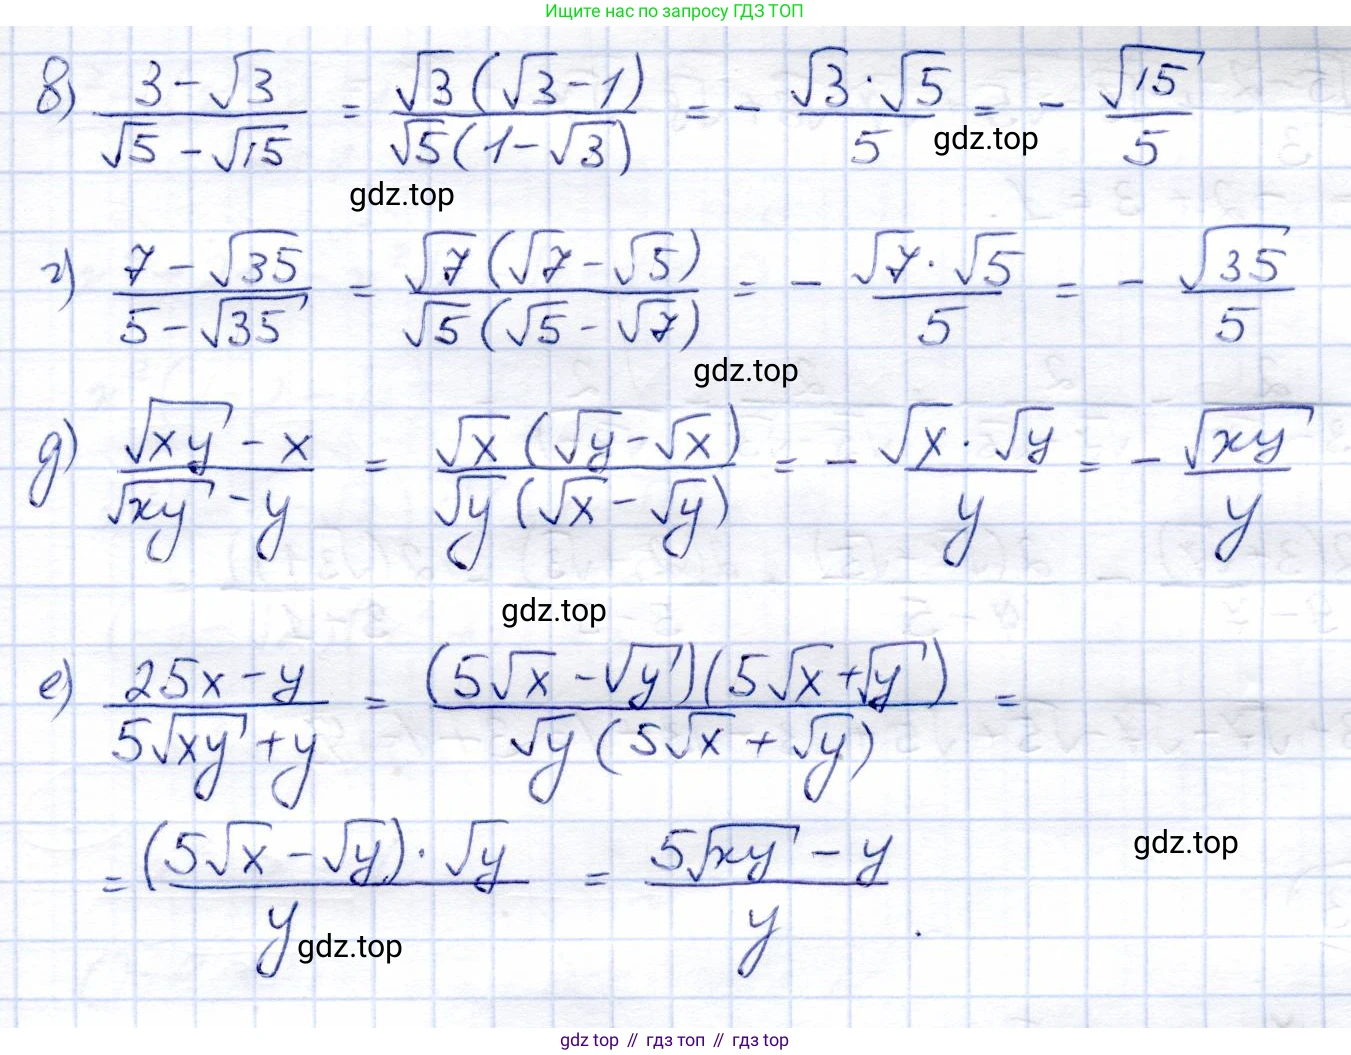 Ищите нас по запросу ГДЗ ТОП
в) (3 - √3)/(√5 - √15) = (√3(√3 - 1))/(√5(1 - √3)) = - (√3 · √5)/5 = - √15/5
gdz.top
gdz.top
г) (7 - √35)/(5 - √35) = (√7(√7 - √5))/(√5(√5 - √7)) = - (√7 · √5)/5 = - √35/5
gdz.top
д) (√xy - x)/(√xy - y) = (√x(√y - √x))/(√y(√x - √y)) = - (√x · √y)/y = - √xy/y
gdz.top
е) (25x - y)/(5√xy + y) = ((5√x - √y)(5√x + √y))/(√y(5√x + √y)) =
= ((5√x - √y) · √y)/y = (5√xy - y)/y .
gdz.top
gdz.top
gdz top // гдз топ // гдз top